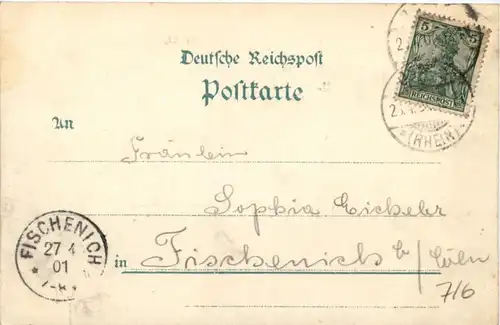 Deutsche Reichspost
Postkarte
5 5
REICHSPOST
(RHEIN)
An
Fräulein
Sophia Eickeler
FISCHENICH
27 4
01
in Fischenich b/Cöln
7/6